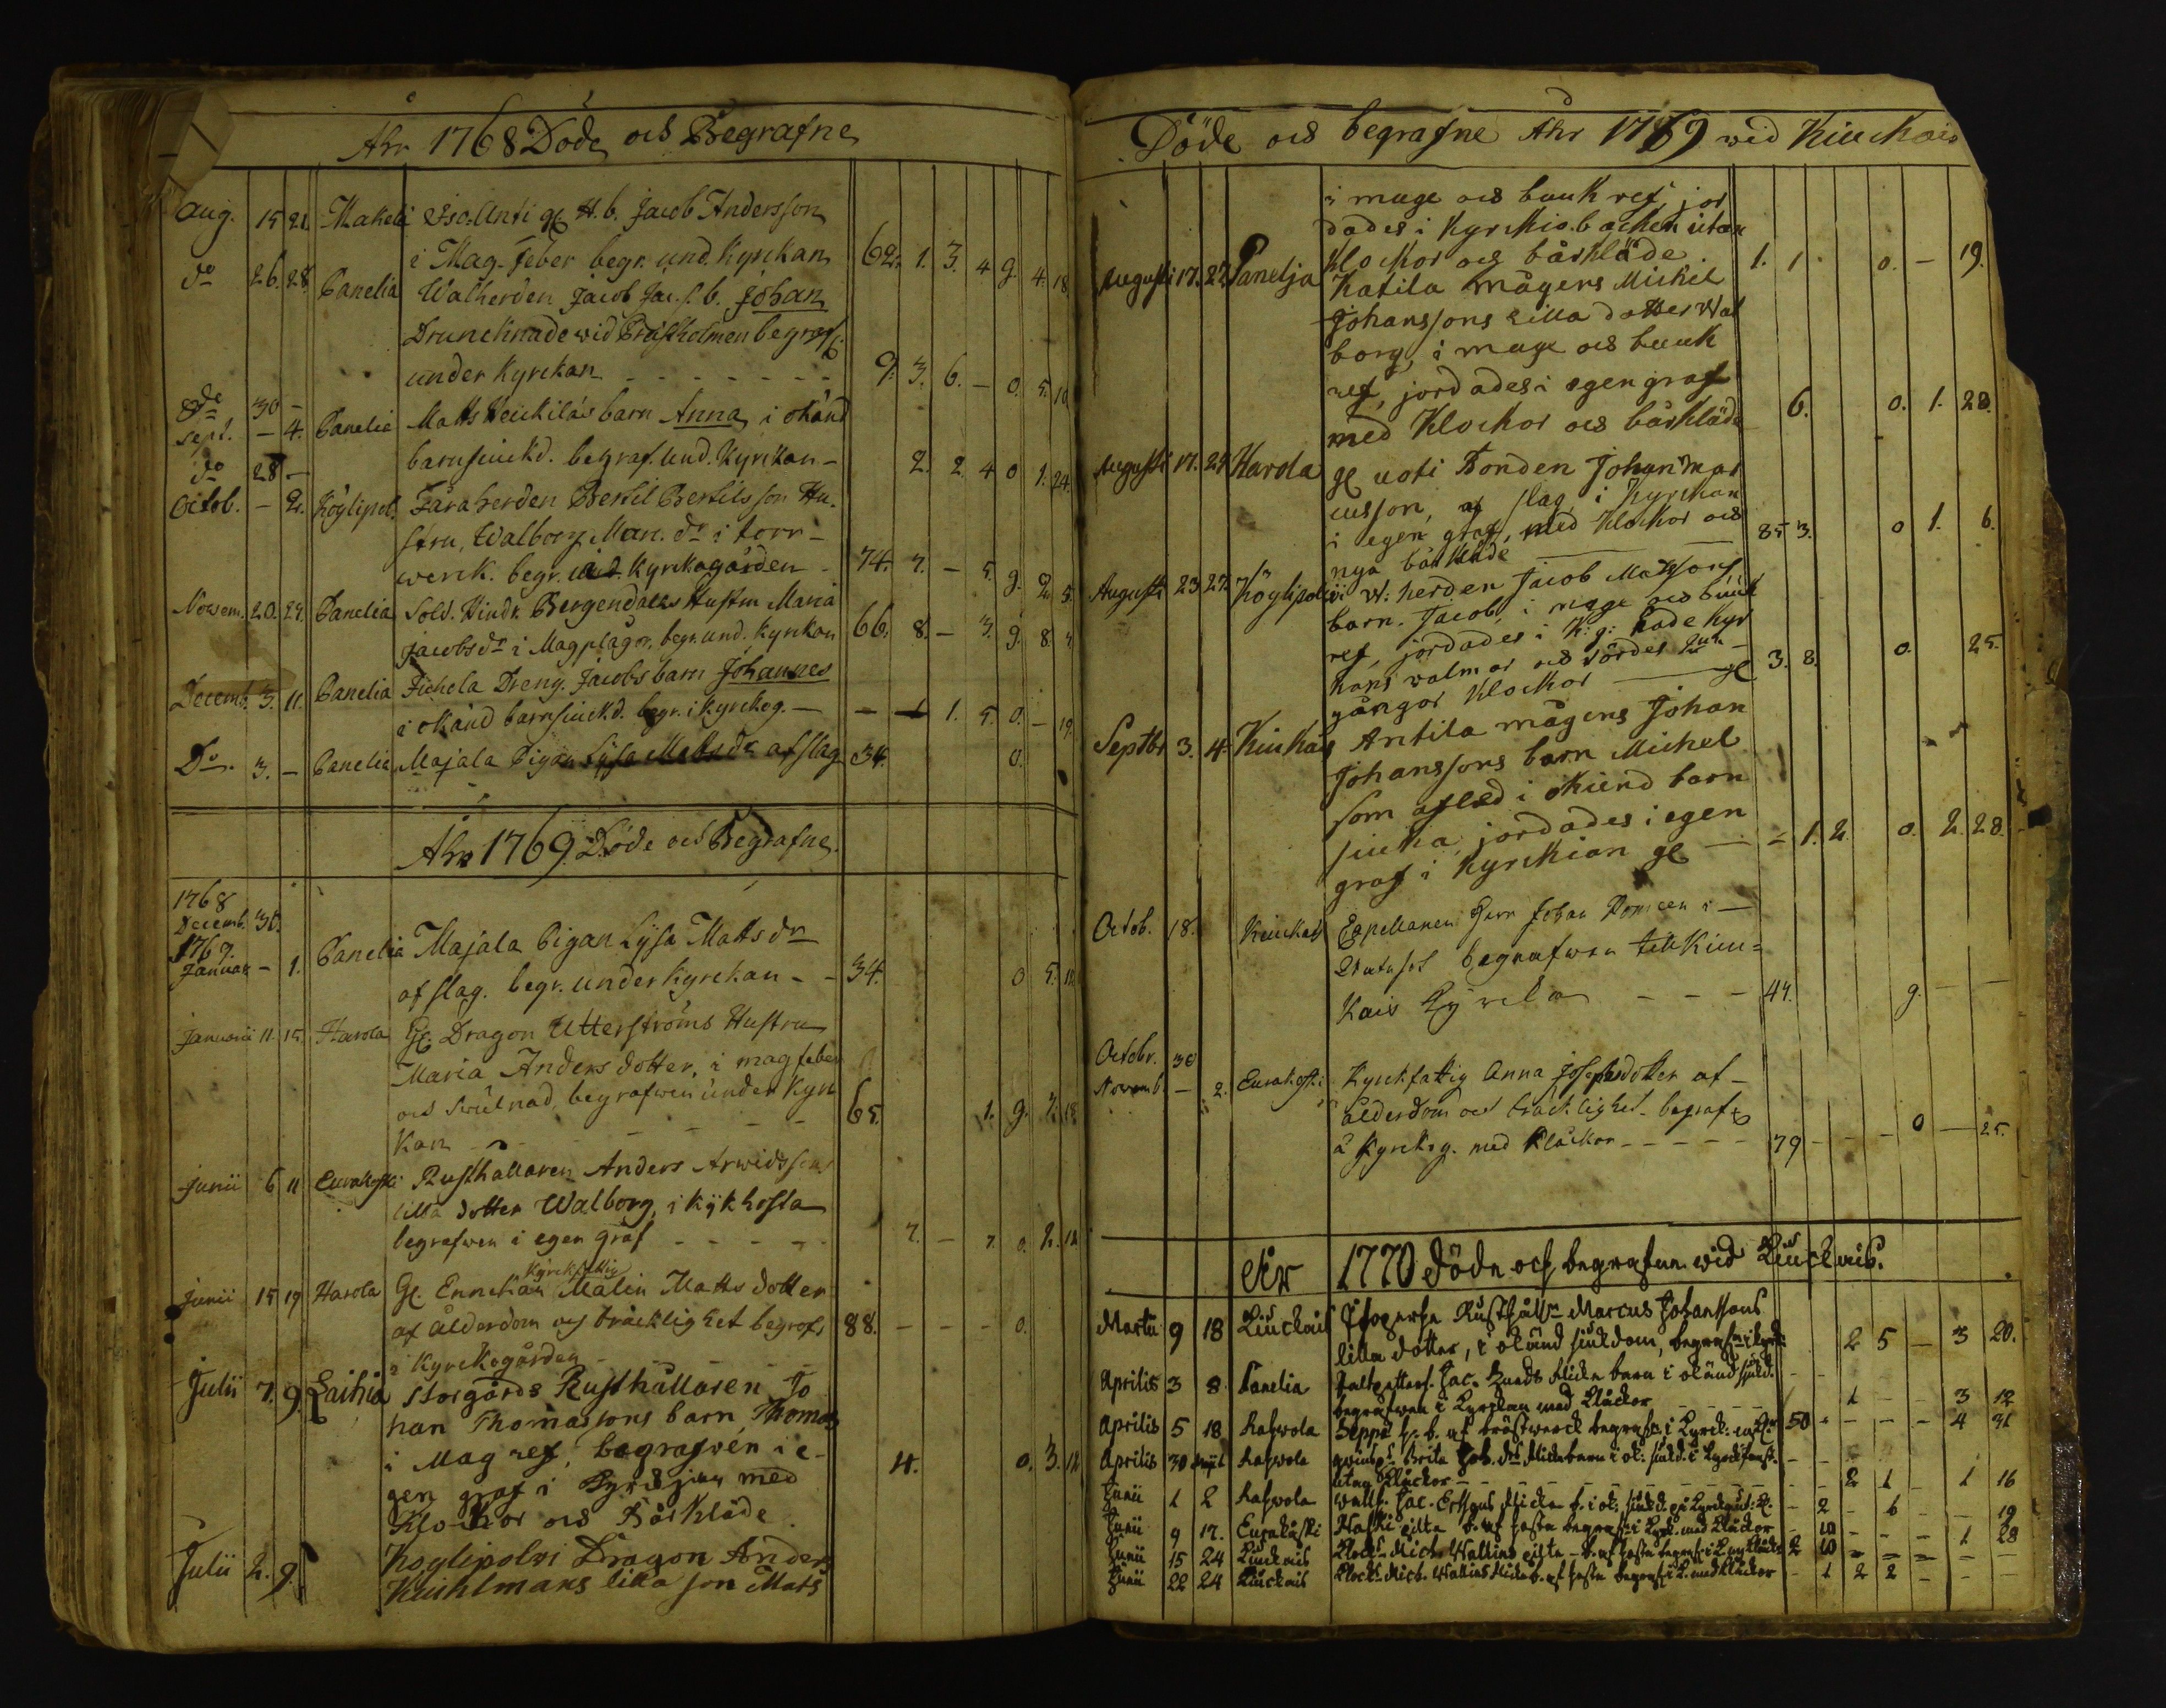 Åhr 1768 Döde och Begrafne
Aug. 15 21. Makeli Iso-Anti gl. H. b. Jacob Andersson
i Mag-feber begr. und. Kyrckan 62. 1. 3. 4 g. 4. 18
do 26. 28. Panelia Walherden Jacob Jac. s. b. Johan
Drunchnade wid Präskholmen begrafs
under Kyrckan - - - 9. 3. 6. - 0. 5. 10
do 30 -
Sept. - 4. Panelia Matts Heickiläs barn Anna i okänd
barnsiuckd. begraf. und. Kyrckan - 2. 2. 4 0 1. 24.
do 28 -
Octob. - 2. Köylipol. Fåraherden Bertil Bertilsson Hu-
stru, Walborg Marc. dr i torr-
werck. begr. und. Kyrckogården - 74. 7. - 5. g. 2. 5.
Novem. 20. 24. Panelia Sold. Hindr. Bergendahls Hustru Maria
Jacobsdr i Magplågor, begr. und. Kyrckan 66. 8. - 3. g. 8. 4
Decemb. 3. 11. Panelia Fichela Dreng. Jacobs barn Johannes
i okänd barnsiuckd. begr. i Kyrckog. - - 1 1. 5. 0. - 19.
Do. 3. - Panelia Majala Pigan Lysa Matts dr af slag 34. 0.
Åhr 1769. Döde och Begrafne.
1768
Decemb. 30.
1769.
Januar - 1. Panelia Majala Pigan Lysa Matts dr
af slag. begr. under Kyrckan - - 34. 0 5. 12
Januarii 11. 15. Harola Gl. Dragon Utterströms Hustru
Maria Anders dotter, i mag feber
och swulnad, begrafwen under Kyr
kan - - - 65. 1. g. 7. 18
Junii 6 11 Eurakoski Rusthållaren Anders Arwidssons
lilla dotter Walborg, i Kikhosta
begrafwen i egen graf - - - 7. - 7. 0. 2. 12
Kyrckfattig
Junii 15 19 Harola Gl. Enckian Malin Matts dotter
af ålderdom och bräcklighet begrofs 88. - - - 0.
i Kyrckogården
Julii 7. 9. Laihia Storgårds Rusthållaren Jo
han Thomassons barn Thomas
i Mag ref, begrafwen i e- 4. 0. 3. 12
gen graf i Kyrckjan med
Klockor och Bårkläde.
Julii 2. 9. Köylipolvi Dragon Anders
Kuihlmans lilla son Mats
Döde och begrafne Åhr 1769 wid Kiuckais
i mage och buuk ref, jor
dades i Kyrckio-backen utan
Klockor och bårkläde 1. 1 0. - 19.
Augusti 17. 27. Panelja Katila mågens Michel
Johanssons lilla dotter Wal
borg, i mage och buuk
ref, jordades i egen graf
med Klockor och bårkläde 6. 0. 1. 28.
Augusti 17. 27 Harola gl uoti Bonden Johan Mar
cusson, af slag, i Kyrckan
i egen graf, med Klockor och 85 3. 0 1. 6.
nya bårkläde
Augusti 23 27. Köylipolvi W. herden Jacob Matssons
barn. Jacob, i mage och buuk
ref, jordades i K: g: hade Kyr
kans walmar och rördes
gångor Klockor gl 3. 8. 0. 25.
Septbr 3. 4. Kiukais Antila mågens Johan
Johanssons barn Michel
som afled i okiend barn
siuka, jordades i egen
graf i Kyrckian gl - 1. 2. 0. 2. 28.
Octob. 18. Keuckais Capellanen Herr Johan Poppeen i
begrafwen till Kiu=
kais Kyrcka - - - 44. g. - -
Octobr. 30
Novemb. - 2. Eurakoski Kyrckfattig Anna Josephsdotter af -
ålderdom och bräcklighet begrafs
å Kyrckog. med Klåckor - - - 79 - - - 0 - 25.
År 1770 döde och begrafne wid Kiuckais.
Martii 9 18 Kiuckais Rusthåll. Marcus Johanssons
lilla dotter, i okänd siukdom, begrafn. i kyrk. 2 5 - 3 20.
Aprilis 3 8 Panelia Jac. Lunds flicke barn i okänd siukd.
begrafwen i Kyrckan med Klåckor - - - 1 - - 3 12
Aprilis 5 18 Rahwola Seppä h. b. af bröstwerck begrafn. i Kyrck. 50 - - - - 4 31
Aprilis 30 Rahwola Brita Joh. dr flickebarn i ok: siukd. i Kyrck
utan Klåckor - - - 2 1 1 16
Junii 1 2 Rahwola Jac. Erssons flicke b. i ok: siukd. på Kyrckog. - 2 - 6 - - 19
Junii 9 17. Eurakåski b. af hosta begrafn i Kyrk. med Klåckor - 10 - - - 1 28
Junii 15 24 Kiuckais Klock. Mich. Wallins - b. af hosta begraf. i K. 2 10 - - - - -
Junii 22 24 Kiuckais Klock. Mich. Wallins flickeb. af hosta begraf. i K. med klåckor - 1 2 2 - - -